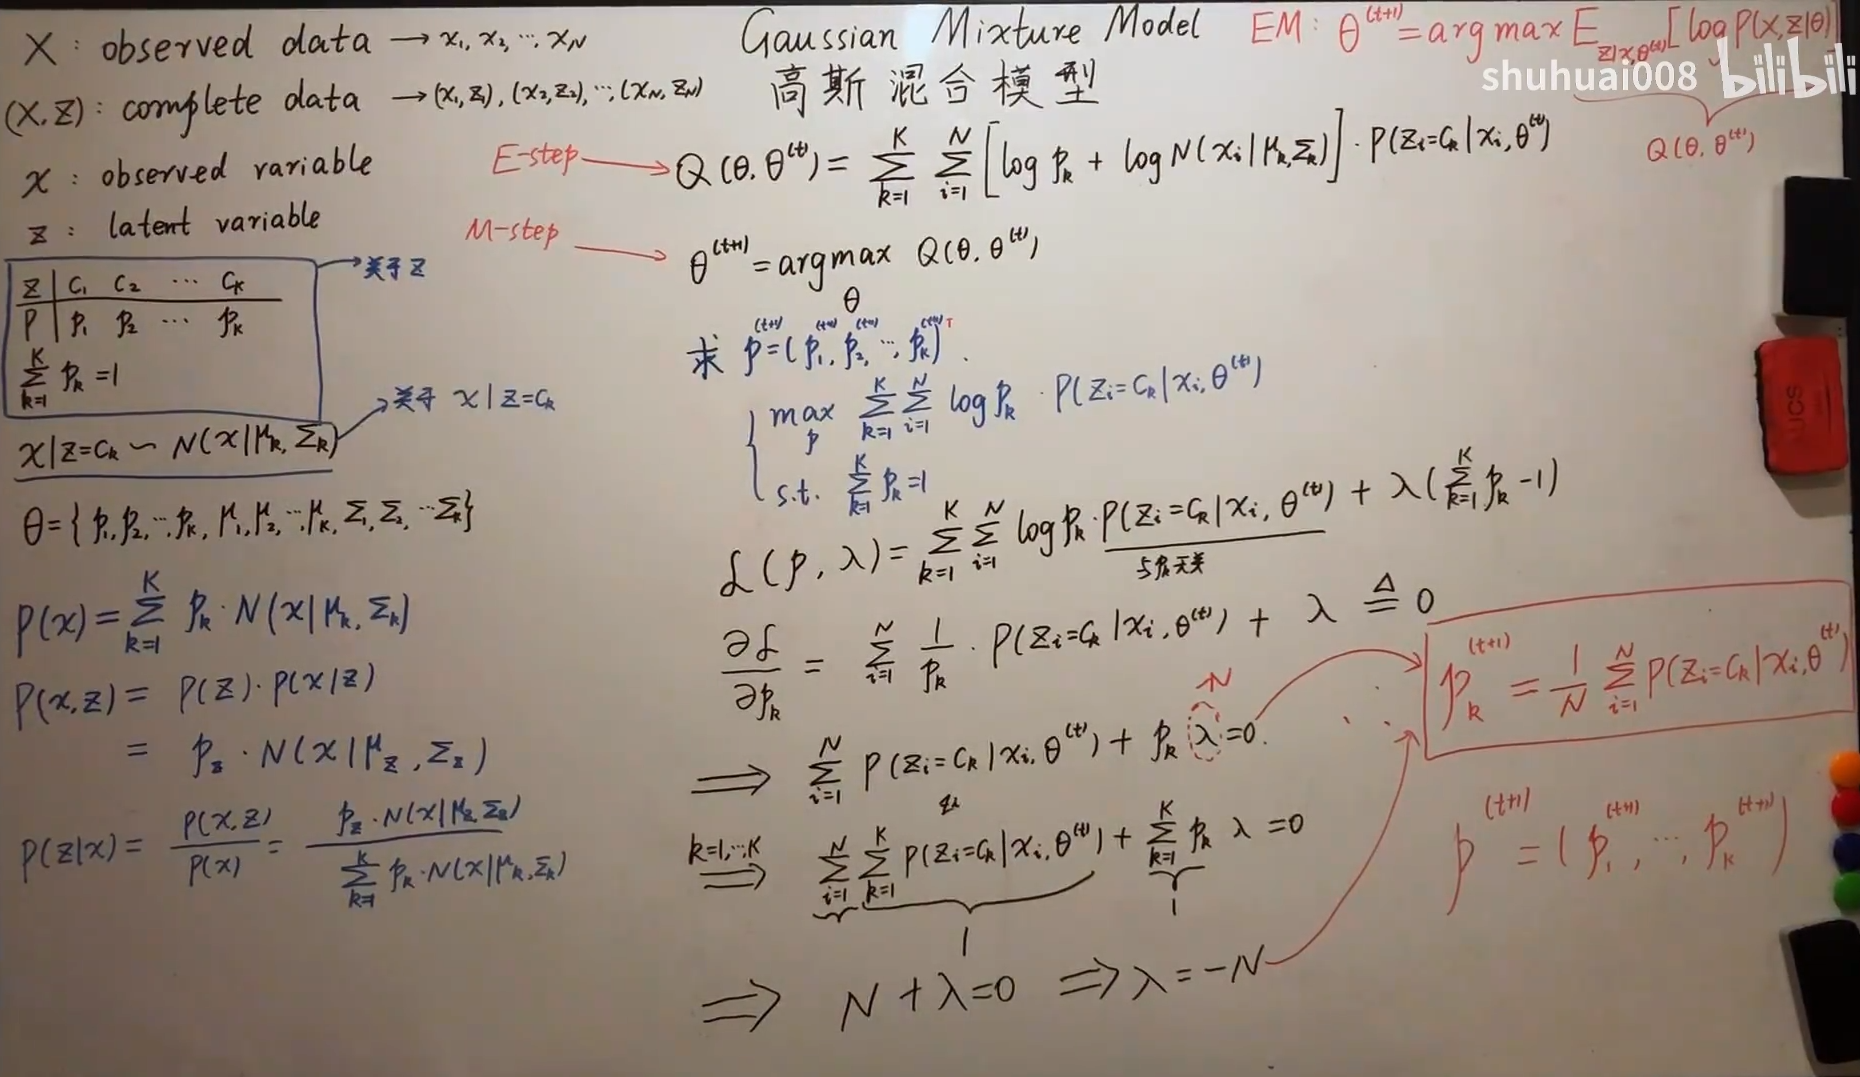 X : observed data → x₁, x₂, ⋯, x_N
(X, Z) : complete data → (x₁, z₁), (x₂, z₂), ⋯, (x_N, z_N)
x : observed variable
z : latent variable
z | C₁ C₂ ⋯ C_K
P | p₁ p₂ ⋯ p_K
∑_{k=1}^{K} p_k = 1
→ 关于 z
x|z=C_k ∼ N(x|μ_k, Σ_k)
→ 关于 x|z=C_k
θ = { p₁, p₂, ⋯, p_K, μ₁, μ₂, ⋯, μ_K, Σ₁, Σ₂, ⋯ Σ_K }
P(x) = ∑_{k=1}^{K} p_k · N(x|μ_k, Σ_k)
P(x,z) = P(z) · P(x|z)
= p_z · N(x|μ_z, Σ_z)
P(z|x) = P(x,z) / P(x) = p_z · N(x|μ_z, Σ_z) / ∑_{k=1}^{K} p_k · N(x|μ_k, Σ_k)
Gaussian Mixture Model
高斯混合模型
EM : θ^{(t+1)} = arg max E_{z|x,θ^{(t)}} [ log P(x,z|θ) ]
Q(θ, θ^{(t)})
shuhuai008 bilibili
E-step → Q(θ, θ^{(t)}) = ∑_{k=1}^{K} ∑_{i=1}^{N} [ log p_k + log N(x_i|μ_k, Σ_k) ] · P(z_i=C_k|x_i, θ^{(t)})
M-step → θ^{(t+1)} = arg max_θ Q(θ, θ^{(t)})
求 p^{(t+1)} = (p₁^{(t+1)}, p₂^{(t+1)}, ⋯, p_K^{(t+1)})^T .
{ max_p ∑_{k=1}^{K} ∑_{i=1}^{N} log p_k · P(z_i=C_k|x_i, θ^{(t)})
s.t. ∑_{k=1}^{K} p_k = 1
ℒ(p, λ) = ∑_{k=1}^{K} ∑_{i=1}^{N} log p_k · P(z_i=C_k|x_i, θ^{(t)}) + λ(∑_{k=1}^{K} p_k - 1)
与p_k无关
∂ℒ/∂p_k = ∑_{i=1}^{N} 1/p_k · P(z_i=C_k|x_i, θ^{(t)}) + λ ≜ 0
-N
⟹ ∑_{i=1}^{N} P(z_i=C_k|x_i, θ^{(t)}) + p_k λ = 0.
k=1,⋯,K ⟹ ∑_{i=1}^{N} ∑_{k=1}^{K} P(z_i=C_k|x_i, θ^{(t)}) + ∑_{k=1}^{K} p_k λ = 0
1 1
⟹ N + λ = 0 ⟹ λ = -N
p_k^{(t+1)} = 1/N ∑_{i=1}^{N} P(z_i=C_k|x_i, θ^{(t)})
p^{(t+1)} = (p₁^{(t+1)}, ⋯, p_K^{(t+1)})